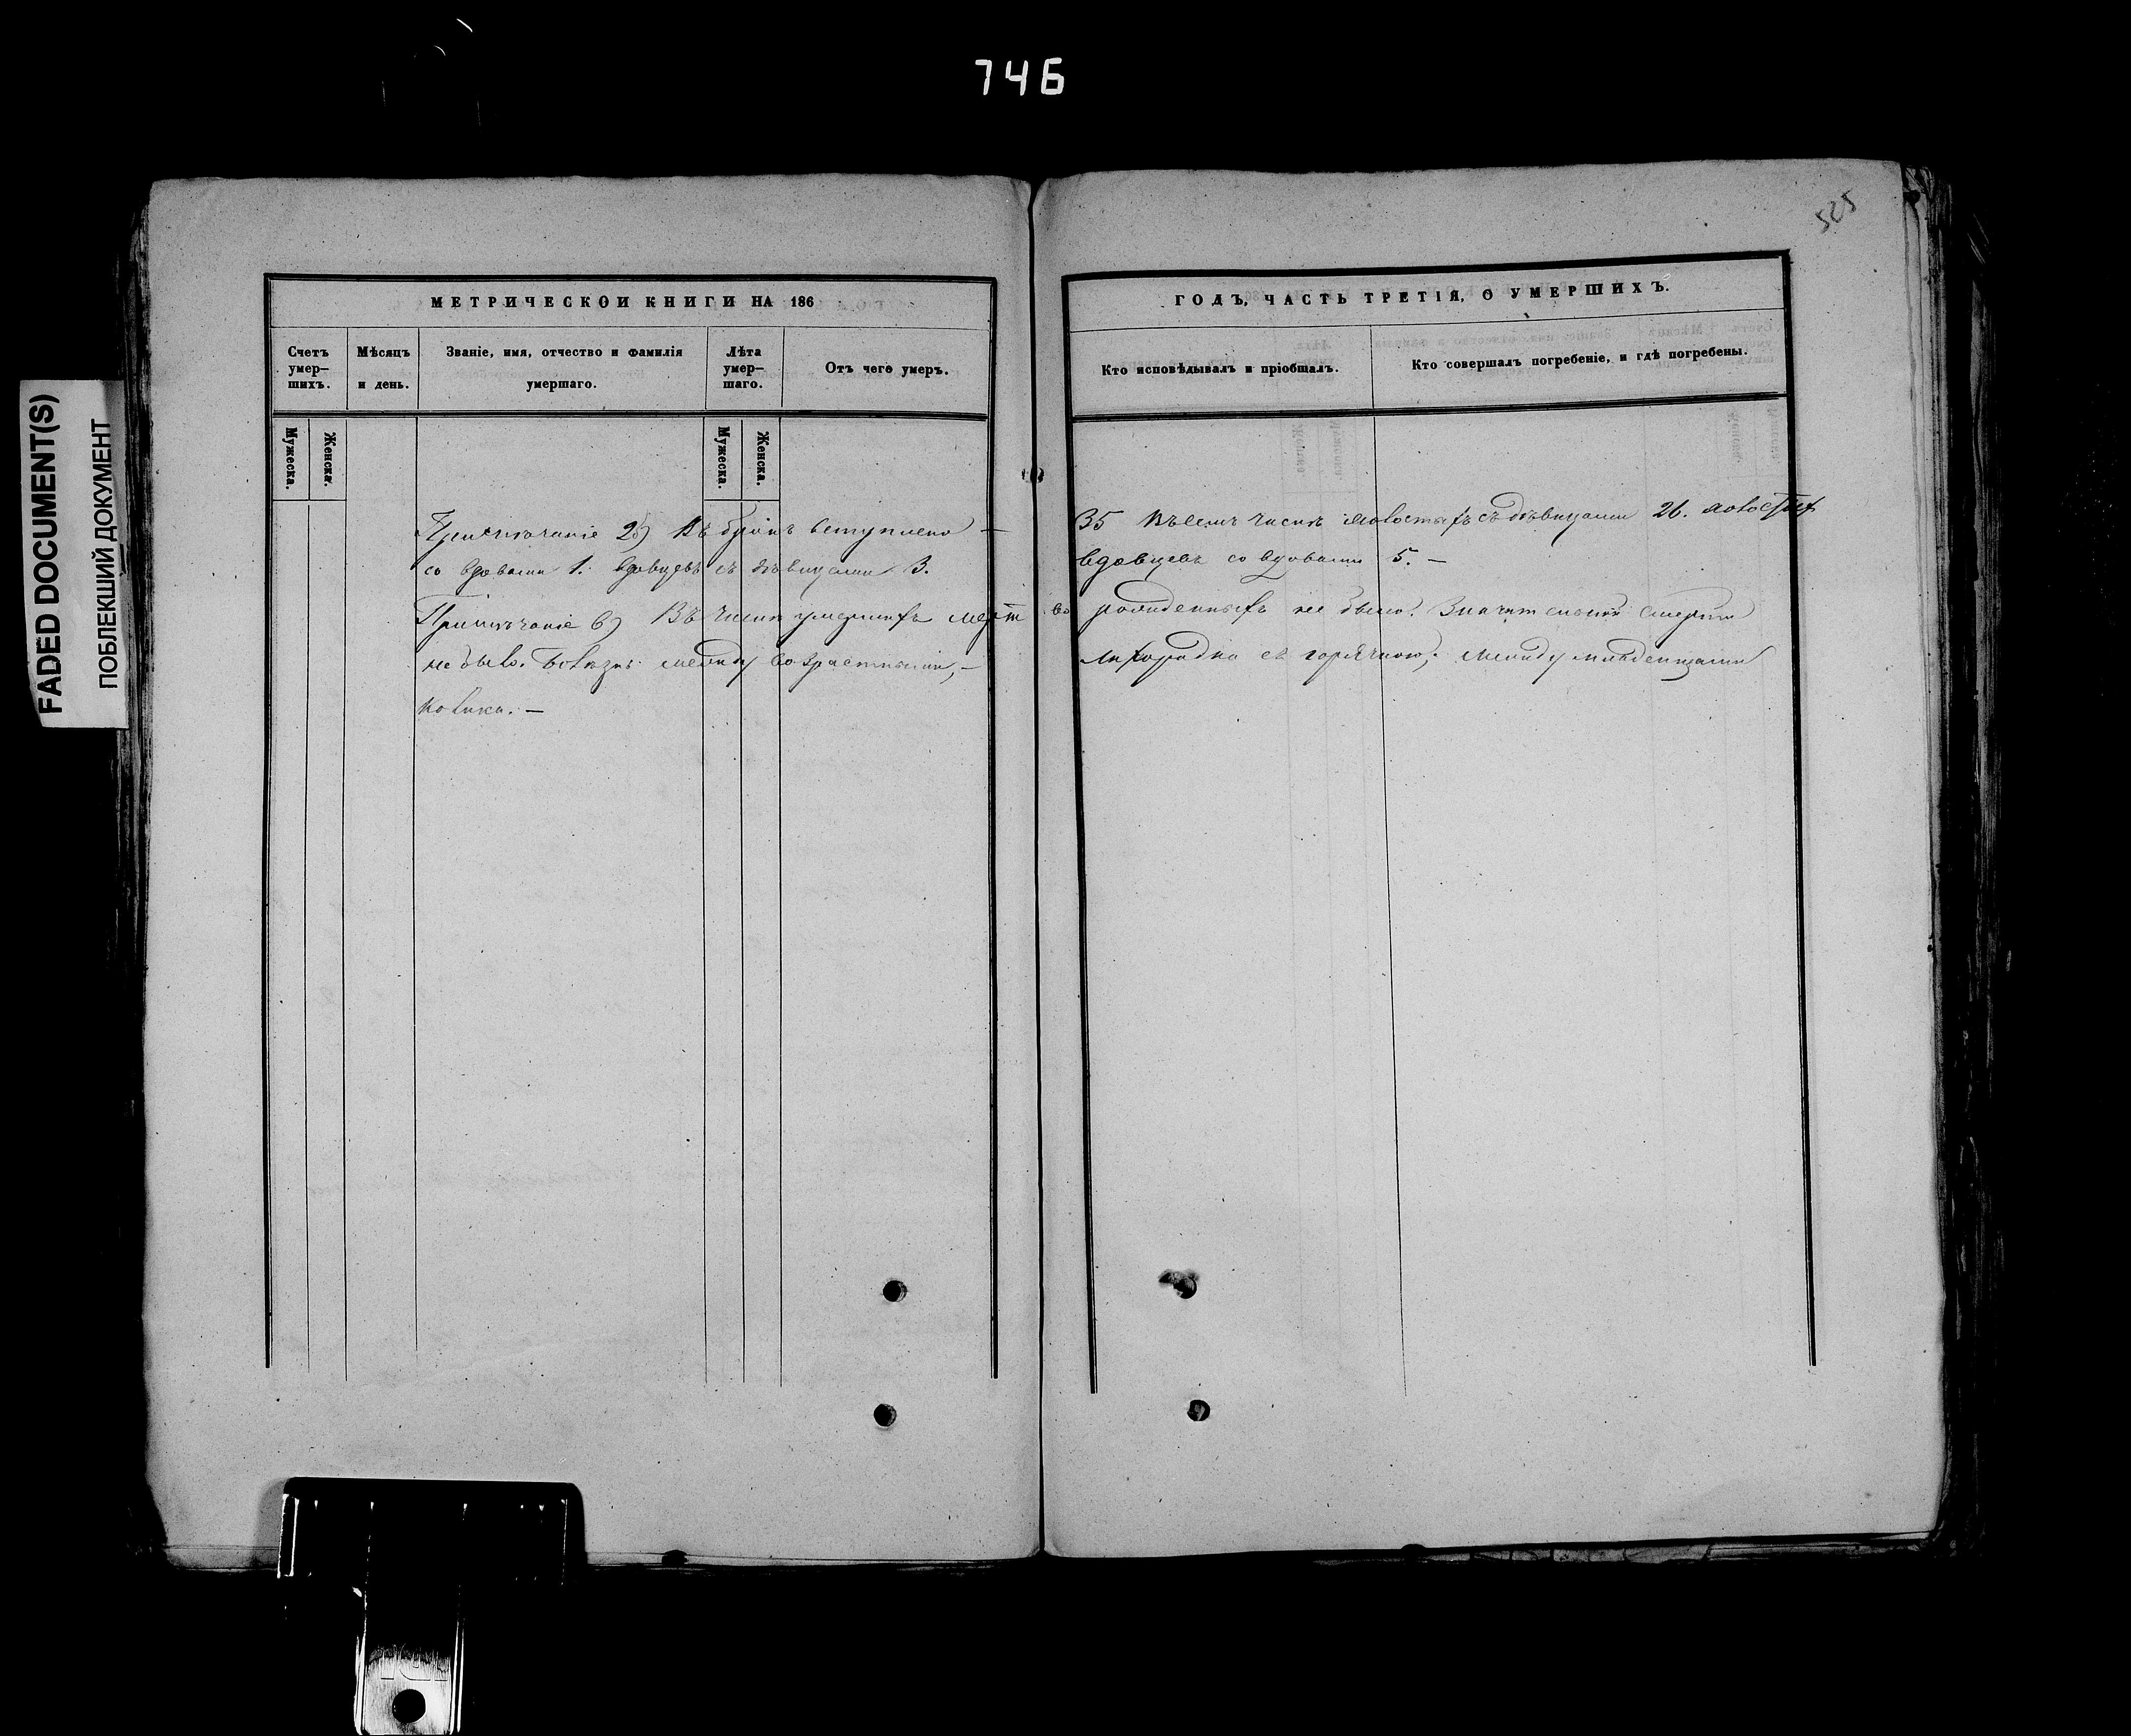 746
525
FADED DOCUMENT(S)
ПОБЛЕКШИЙ ДОКУМЕНТ
МЕТРИЧЕСКОЙ КНИГИ НА 186
Счетъ умер-шихъ.
Мѣсяцъ и день.
Званіе, имя, отчество и фамилія умершаго.
Лѣта умер-шаго.
Отъ чего умеръ.
Мужеска.
Женска.
Мужеска.
Женска.
ГОДЪ, ЧАСТЬ ТРЕТІЯ, О УМЕРШИХЪ.
Кто исповѣдывалъ и пріобщалъ.
Кто совершалъ погребеніе, и гдѣ погребены.
Примѣчаніе Въ бракъ вступлено — 35 Въ семъ числѣ холостыхъ съ дѣвицами 26. холостых
со вдовами 1. вдовцевъ съ дѣвицами 3. вдовцевъ со вдовами 5. —
Примѣчаніе Въ числѣ умершихъ мерт во рожденныхъ не было. Значительной смерти
не было. Болѣзнь между возрастными, — лихорадка съ горячкою, между младенцами
колика. —